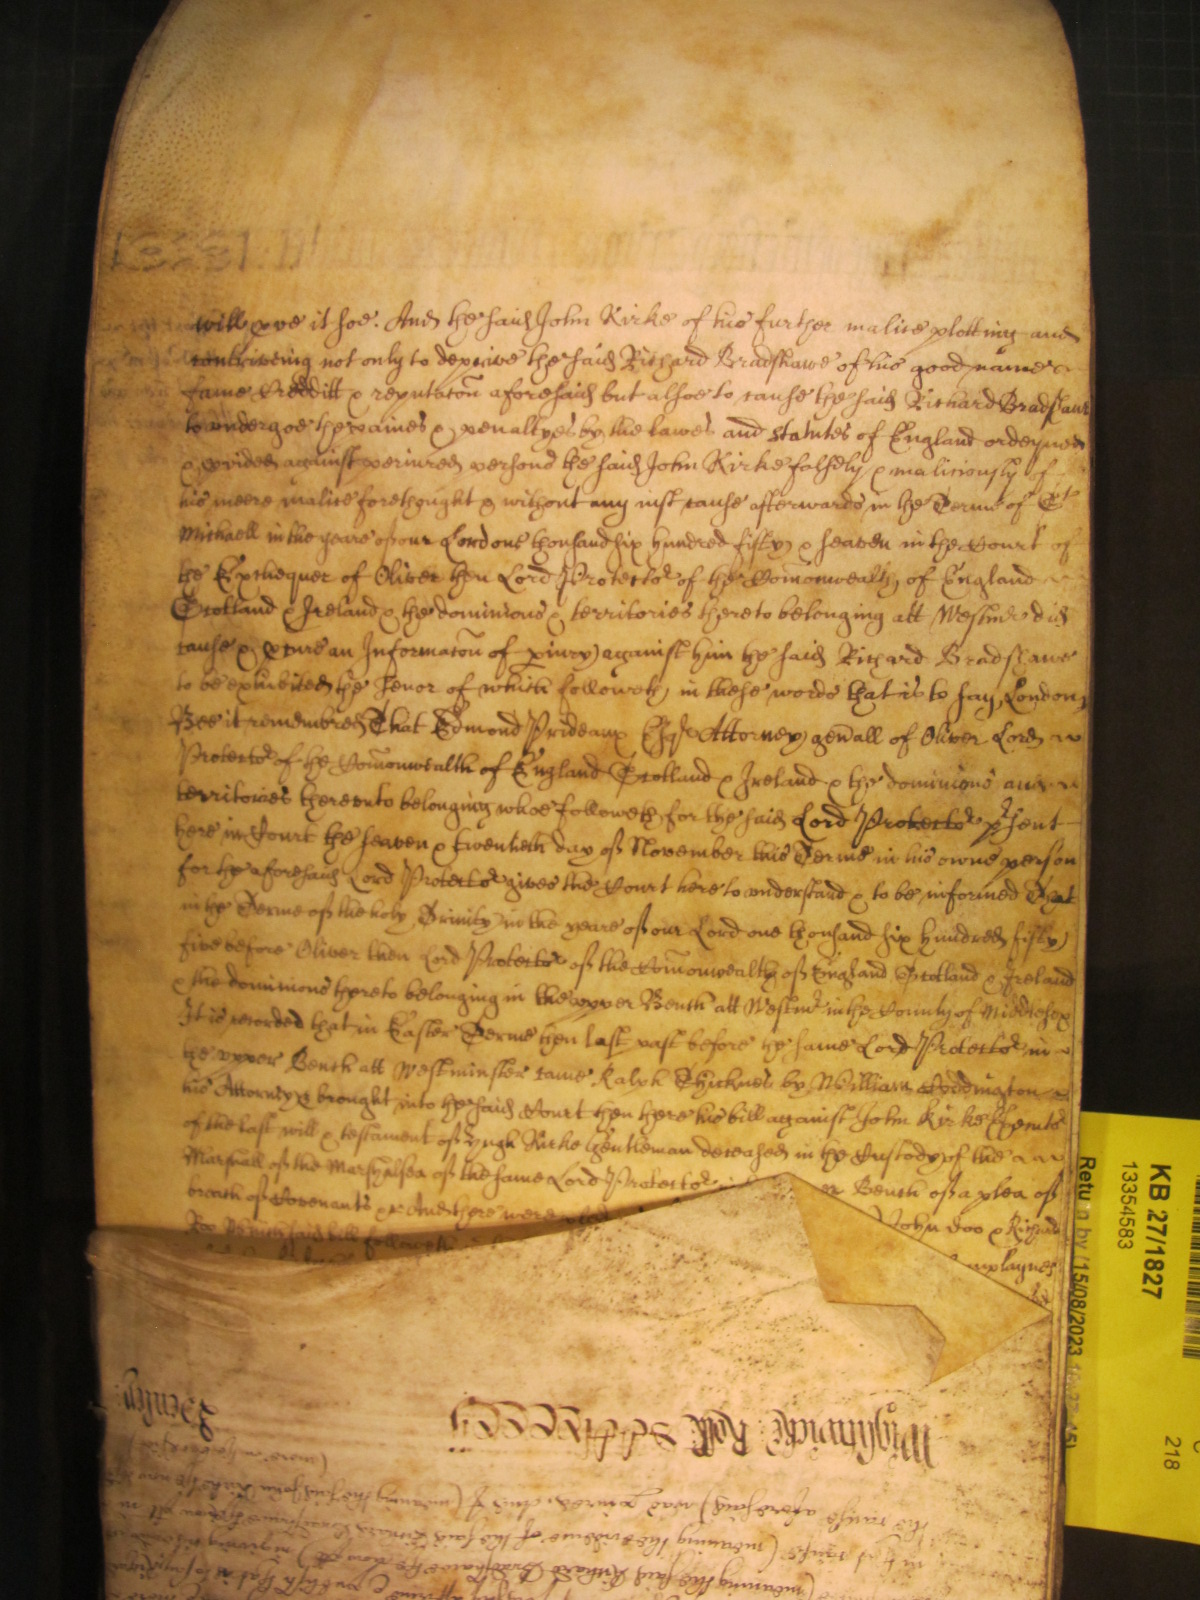 will prove it soe. And the said John Kirke of his further malice plotting and
contriveing not only to deprive the said Richard Bradshawe of his good name
fame Creditt & reputacon aforesaid but alsoe to cause the said Richard Bradshawe
to undergoe the paines & penaltyes by the lawes and statutes of England ordeyned
& provided against periured persons the said John Kirke falsely & maliciously of
his meere malice forethought & without any iust cause afterwards in the Terme of St
Michaell in the yeare of our Lord one thousand six hundred fifty & seaven in the Court of
the Exchequer of Oliver then Lord Protector of the Comonwealth of England
Scotland & Ireland & the dominions & territories thereto belonging att Westmr did
cause & pcure an Informacon of piury against him the said Richard Bradshawe
to be exhibited the tenor of which followeth in these words that is to say, London
Bee it remembred That Edmond Prideaux Esqr Attorney genall of Oliver Lord
Protector of the Comonwealth of England Scotland & Ireland & the dominions and
territories thereunto belonging whoe followeth for the said Lord Protector psent
here in Court the seaven & twentieth day of November this Terme in his owne person
for the aforesaid Lord Protector gives the Court here to understand & to be informed That
in the Terme of the holy Trinity in the yeare of our Lord one thousand six hundred fifty
five before Oliver then Lord Protector of the Comonwealth of England Scotland & Ireland
& the dominions thereto belonging in the upper Bench att Westmr in the County of Middlesex
It is recorded that in Easter Terme then last past before the same Lord Protector in
the upper Bench att Westminster came Ralph Thicknes by William Coddington
his Attorney & brought into the said Court then there his bill against John Kirke Executor
of the last will & testament of Hugh Kirke gentleman deceased in the Custody of the
Marshall of the Marshalsea of the same Lord Protector Bench of a plea of
breach of Covenants & And there were John Doo & Richard
Roo Which said bill followeth complaynes
Wightwicke Roll
Henley
the cause aforesaid) was periured, And I (meaning the said John Kirke
in that cause (meaning the evidence of the said Richard Bradshawe
(meaning the said Richard Bradshawe
KB 27/1827
13354583
Return by (15/08/2023
218